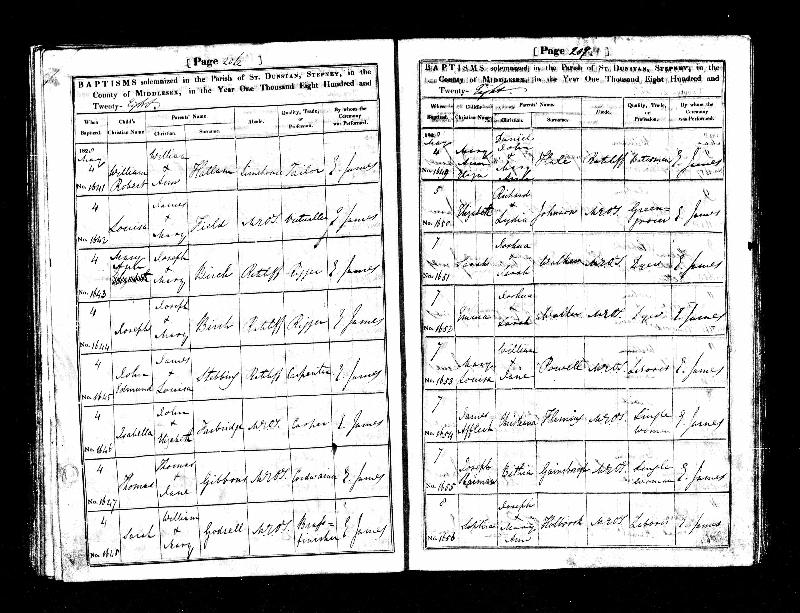 [ Page ]
BAPTISMS solemnized in the Parish of ST. DUNSTAN, STEPNEY, in the
County of MIDDLESEX, in the Year One Thousand Eight Hundred and
Twenty- Eight
When Baptized. Child's Christian Name Parents' Name Christian. Surname. Abode. Quality, Trade, or Profession. By whom the Ceremony was Performed.
May 4 No. 1641 William Robert William & Ann Limehouse Tailor E. James
4 No. 1642 Louisa James & Mary Field M.R.O.T. Victualler E. James
4 No. 1643 Mary Joseph & Mary Birch Ratcliff Rigger E. James
4 No. 1644 Joseph Joseph & Mary Birch Ratcliff Rigger E. James
4 No. 1645 John Edmund James & Louisa Stebbing Ratcliff Carpenter E. James
4 No. 1646 Isabella John & Elizabeth M.R.O.T. Cooper E. James
4 No. 1647 Thomas Thomas & Jane Gibbons M.R.O.T. Cordwainer E. James
4 No. 1648 Sarah William & Mary Godsell M.R.O.T. Brass-finisher E. James
[ Page 209 ]
BAPTISMS solemnized in the Parish of ST. DUNSTAN, STEPNEY, in the
County of MIDDLESEX, in the Year One Thousand Eight Hundred and
Twenty- Eight
When Baptized. Child's Christian Name. Parents' Name. Christian. Surname. Abode. Quality, Trade, or Profession. By whom the Ceremony was Performed.
May 4 No. 1649 Mary Ann Eliza Daniel John & Mary Hale Ratcliff Waterman E. James
5 No. 1650 Elizabeth Richard & Lydia Johnson M.R.O.T. Green-grocer E. James
7 No. 1651 Sarah Joshua & Sarah M.R.O.T. Dyer E. James
7 No. 1652 Emma Joshua & Sarah M.R.O.T. Dyer E. James
7 No. 1653 Mary Louisa William & Jane Powell M.R.O.T. Laborer E. James
7 No. 1654 James Affleck Fleming M.R.O.T. Single woman E. James
7 No. 1655 Joseph Bethia M.R.O.T. Single woman E. James
8 No. 1656 Sophia Joseph & Mary Ann Holbrook M.R.O.T. Laborer E. James